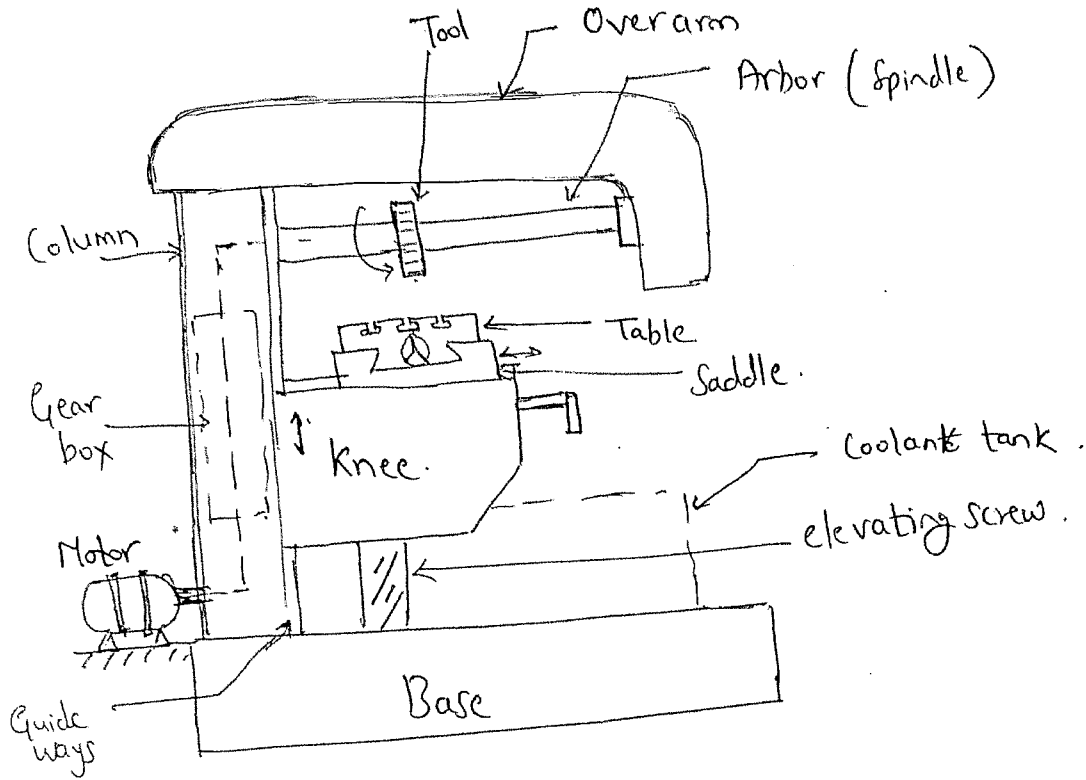 Tool
Overarm
Arbor (Spindle)
Column
Table
Saddle.
Gear
box
Knee.
Coolant tank.
elevating screw.
Motor
Base
Guide
ways